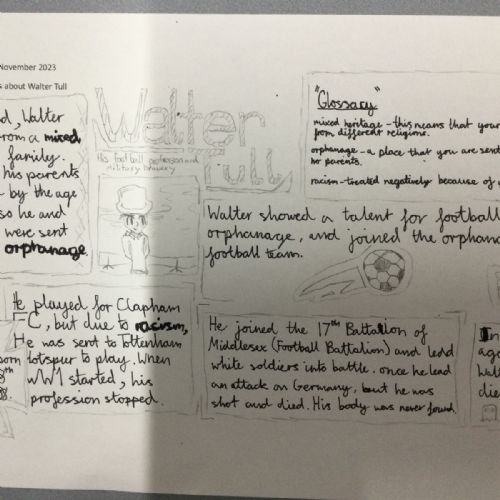 November 2023
s about Walter Tull
d, Walter
from a mixed
family.
his parents
by the age
so he and
were sent
orphanage.
Walter
Tull
His football profession and
military bravery
"Glossary"
mixed heritage - this means that your
from different religions.
orphanage - a place that you are sent
no parents.
racism - treated negatively because of
Walter showed a talent for football
orphanage, and joined the orphana
football team.
He played for Clapham
FC, but due to racism,
He was sent to Tottenham
lotspur to play. When
WW1 started, his
profession stopped.
born
8th
88.
He joined the 17th Battalion of
Middlesex (Football Battalion) and lead
white soldiers into battle. once he lead
an attack on Germany, but he was
shot and died. His body was never found.
In
ago
Walt
die